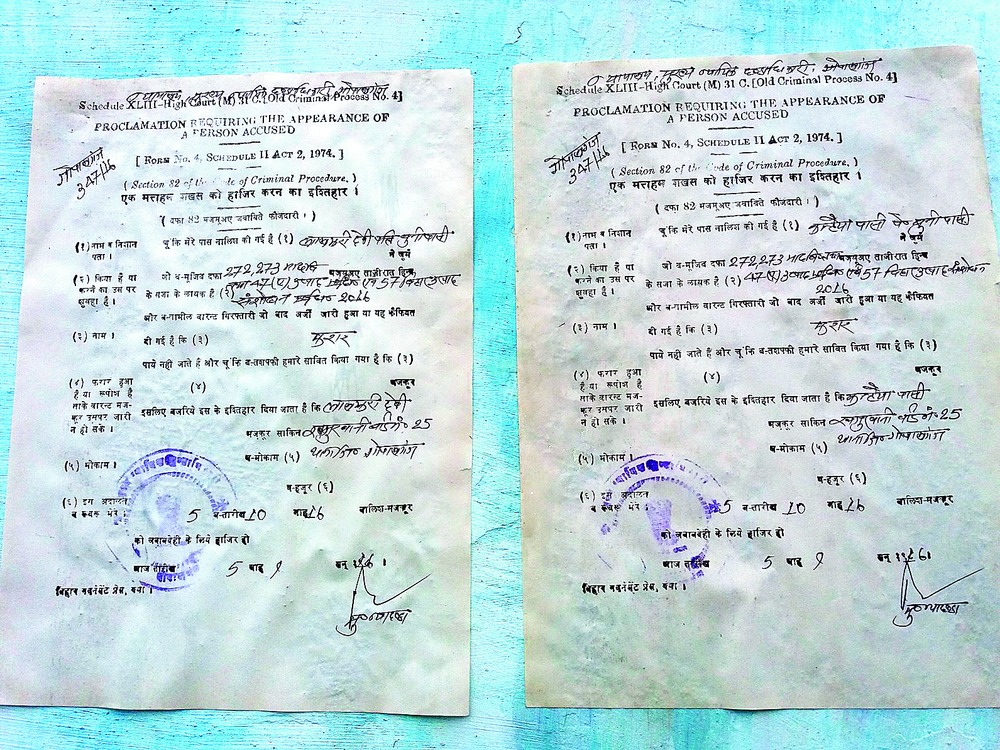 न्यायालय, मुख्य न्यायिक दण्डाधिकारी, गोपालगंज
Schedule XLIII-High Court (M) 31 C. [Old Criminal Process No. 4]
PROCLAMATION REQUIRING THE APPEARANCE OF
A PERSON ACCUSED
गोपालगंज
347/16
[ FORM NO. 4, SCHEDULE II ACT 2, 1974. ]
( Section 82 of the Code of Criminal Procedure. )
एक मत्तहम शख्स को हाजिर करन का इश्तिहार ।
( दफा 82 मजमूअए जवाबिते फौजदारी । )
(१) नाम व निशान पता ।
चूंकि मेरे पास नालिश की गई है (१) देवी पति
ने जुर्म
(२) किया है या करने का उस पर शुबहा है ।
जो ब-मुजिब दफा 272,273 भादवि मजमूअए ताजीरात हिन्द
के सजा के लायक है (२)
2016
और ब-तामील वारन्ट गिरफ्तारी जो बाद अर्जी जारी हुआ था यह कैफियत
(३) नाम ।
दी गई है कि (३) फरार
पाये नहीं जाते हैं और चूंकि ब-तशफ्फी हमारे साबित किया गया है कि (३)
(४) फरार हुआ है या रूपोश है ताके वारन्ट मज-कूर उसपर जारी न हो सके ।
(४)
इसलिए बजरिये इस के इश्तिहार दिया जाता है कि देवी
मजकूर साकिन वार्ड नं० 25
(५) मोकाम ।
ब-मोकाम (५) गोपालगंज
ब-हजूर (६)
(६) इस अदालत व रूबरू मेरे ।
5 ब-तारीख 10 माह 16
को जवाबदेही के लिये हाजिर हो
आज तारीख 5 माह 9 सन्
बिहार गवर्नमेंट प्रेस, गया ।
न्यायालय, मुख्य न्यायिक दण्डाधिकारी, गोपालगंज
Schedule XLIII-High Court (M) 31 C. [Old Criminal Process No. 4]
PROCLAMATION REQUIRING THE APPEARANCE OF
A PERSON ACCUSED
गोपालगंज
347/16
[ FORM NO. 4, SCHEDULE II ACT 2, 1974. ]
( Section 82 of the Code of Criminal Procedure. )
एक मत्तहम शख्स को हाजिर करन का इश्तिहार ।
( दफा 82 मजमूअए जवाबिते फौजदारी । )
(१) नाम व निशान पता ।
चूंकि मेरे पास नालिश की गई है (१) कन्हैया पासी
ने जुर्म
(२) किया है या करने का उस पर शुबहा है ।
जो ब-मुजिब दफा 272,273 मजमूअए ताजीरात हिन्द
के सजा के लायक है (२)
2016
और ब-तामील वारन्ट गिरफ्तारी जो बाद अर्जी जारी हुआ था यह कैफियत
(३) नाम ।
दी गई है कि (३) फरार
पाये नहीं जाते हैं और चूंकि ब-तशफ्फी हमारे साबित किया गया है कि (३)
(४) फरार हुआ है या रूपोश है ताके वारन्ट मज-कूर उसपर जारी न हो सके ।
(४) मजकूर
इसलिए बजरिये इस के इश्तिहार दिया जाता है कि कन्हैया पासी
मजकूर साकिन वार्ड नं० 25
(५) मोकाम ।
ब-मोकाम (५) गोपालगंज
ब-हजूर (६)
(६) इस अदालत व रूबरू मेरे ।
5 ब-तारीख 10 माह 16 नालिश-मजकूर
को जवाबदेही के लिये हाजिर हो
आज तारीख 5 माह 9 सन्
बिहार गवर्नमेंट प्रेस, गया ।